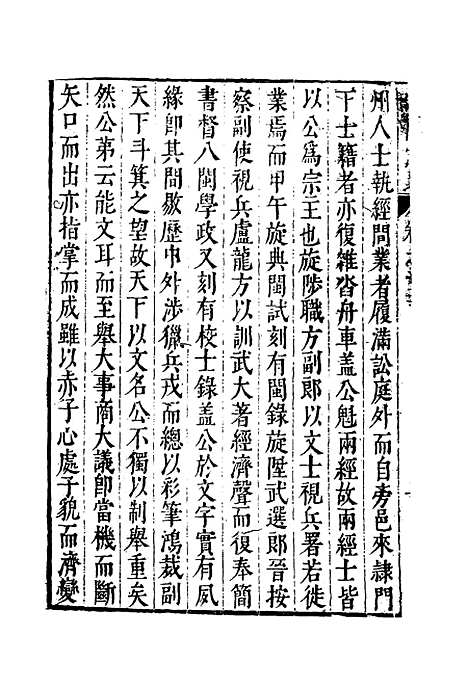 州人士執經問業者履滿訟庭外而自旁邑來隷門
下士籍者亦復雜沓舟車盖公魁兩經故兩經士皆
以公爲宗王也旋陟職方副郎以文士視兵署若徙
業焉而甲午旋典閩試刻有閩錄旋陞武選郎晉按
察副使視兵盧龍方以訓武大著經濟聲而復奉簡
書督八閩學政又刻有校士錄盖公於文字實有夙
緣卽其間敭歷中外涉獵兵戎而總以彩筆鴻裁副
天下斗箕之望故天下以文名公不獨以制舉重矣
然公第云能文耳而至舉大事商大議卽當機而斷
矢口而出亦指掌而成雖以赤子心處子貌而濟變